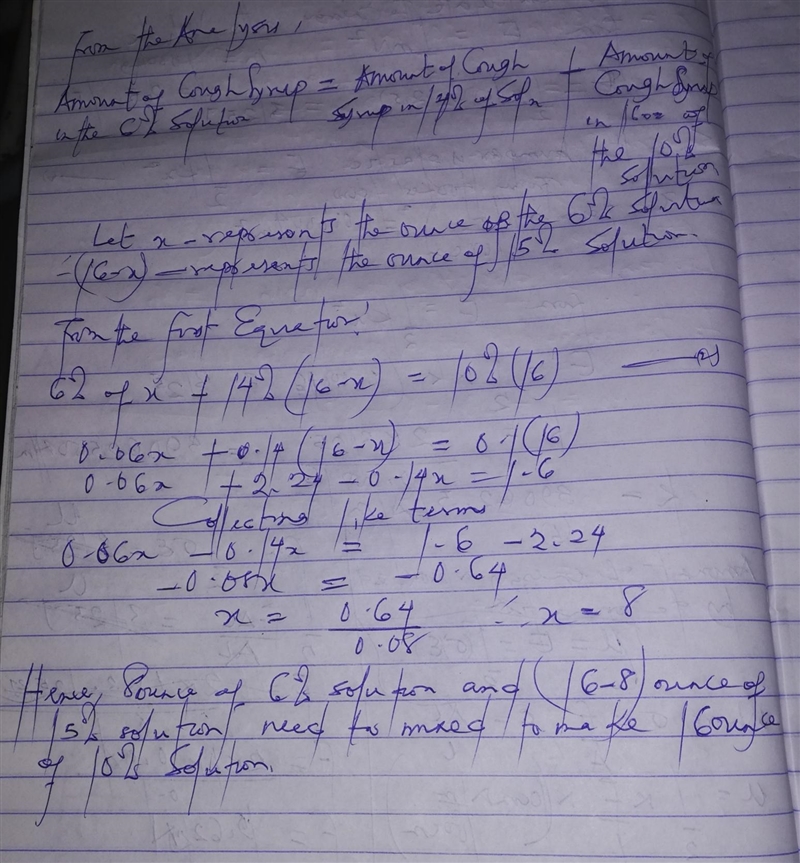 From the Analysis,
Amount of Cough Syrup = Amount of Cough + Amount of
in the 6% Solution Syrup in 14% of Soln Cough Syrup
in 16oz of
the 10%
solution
Let x - represents the ounce of the 6% solution
∴ (16-x) - represents the ounce of 15% solution.
From the first Equation:
6% of x + 14% (16-x) = 10% (16)
0.06x + 0.14 (16-x) = 0.1(16)
0.06x + 2.24 - 0.14x = 1.6
Collecting like terms
0.06x - 0.14x = 1.6 - 2.24
-0.08x = -0.64
x = 0.64 ∴ x = 8
0.08
Hence, 8ounce of 6% solution and (16-8) ounce of
15% solution need to mixed to make 16ounce
of 10% solution.